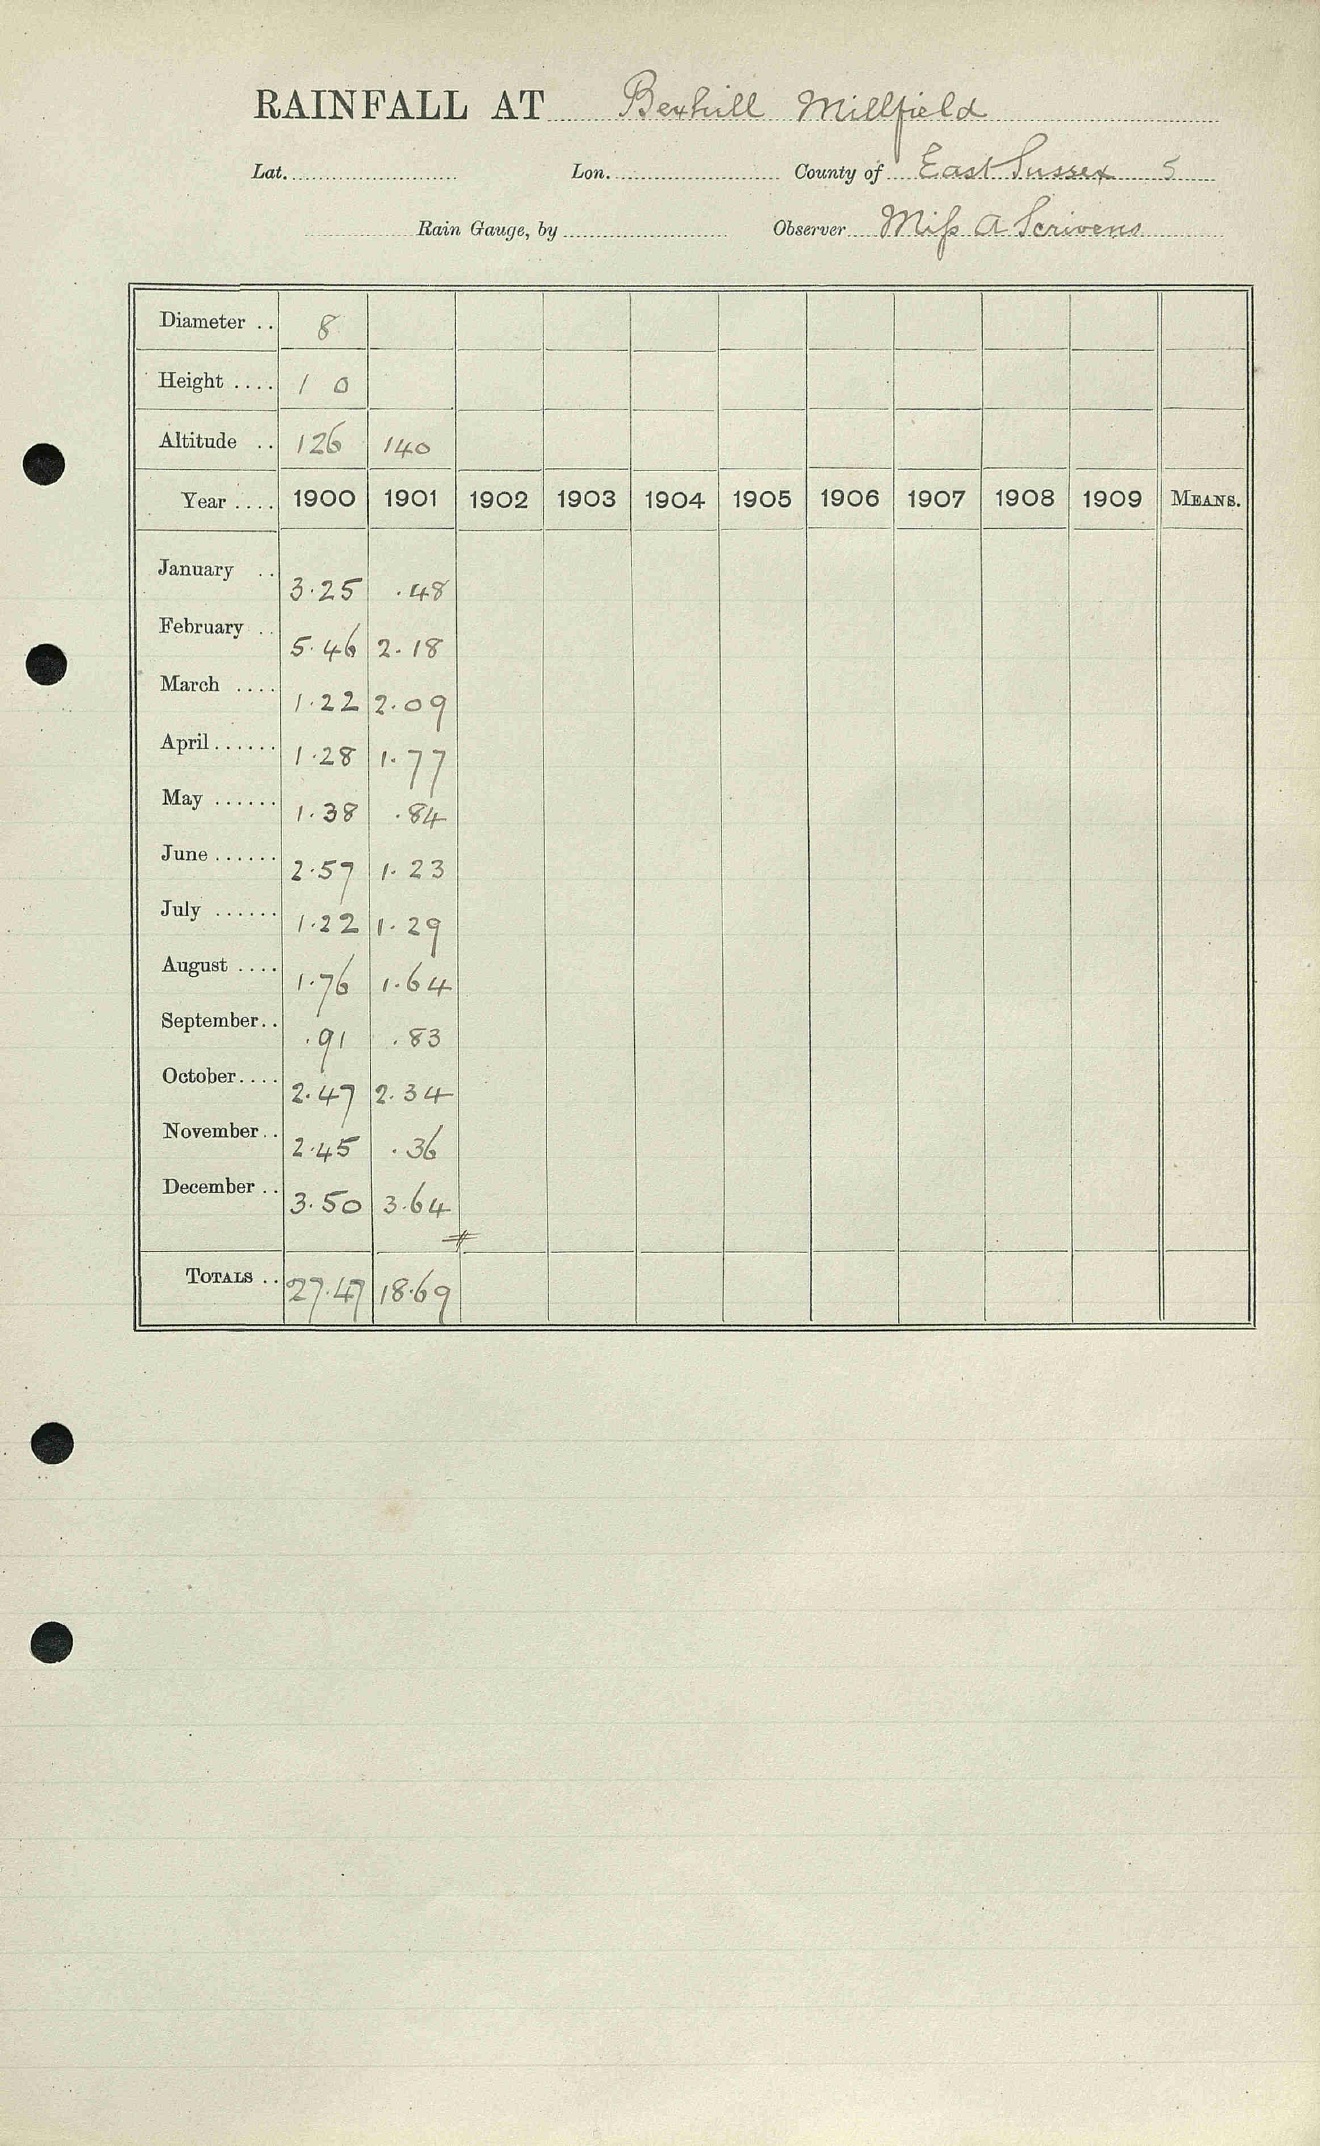 RAINFALL AT Bexhill Millfield
Lat. Lon. County of East Sussex 5
Rain Gauge, by Observer Miss A Scrivens
Diameter .. 8
Height .... 1 0
Altitude .. 126 140
Year .... 1900 1901 1902 1903 1904 1905 1906 1907 1908 1909 MEANS.
January .. 3.25 .48
February .. 5.46 2.18
March .... 1.22 2.09
April ...... 1.28 1.77
May ...... 1.38 .84
June ...... 2.57 1.23
July ...... 1.22 1.29
August .... 1.76 1.64
September .. .91 .83
October .... 2.47 2.34
November .. 2.45 .36
December .. 3.50 3.64
#
TOTALS .. 27.47 18.69